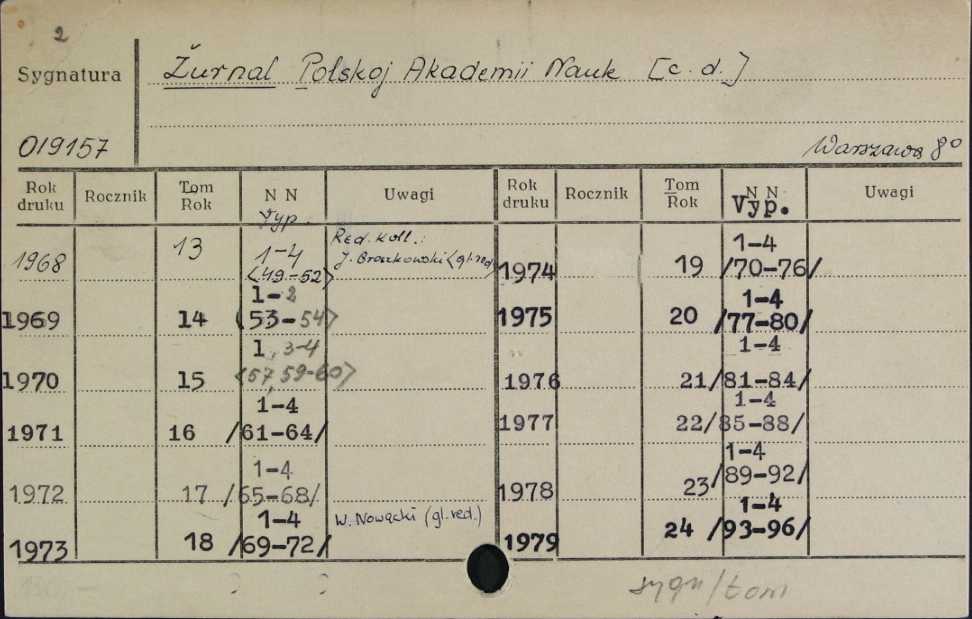 2
Sygnatura
Žurnal Polskoj Akademii Nauk [c. d.]
019157
Warszawa 8°
Rok druku Rocznik Tom Rok N N Uwagi Rok druku Rocznik Tom Rok N N Uwagi
Vyp. Vyp.
1968 13 1-4 <49-52> Red. koll.: J. Groszkowski <gl. red>
1969 14 1-2 <53-54>
1970 15 1, 3-4 <57, 59-60>
1971 16 1-4 /61-64/
1972 17 1-4 /65-68/
1973 18 1-4 /69-72/ W. Nowacki (gl. red.)
1974 19 1-4 /70-76/
1975 20 1-4 /77-80/
1976 21 1-4 /81-84/
1977 22 1-4 /85-88/
1978 23 1-4 /89-92/
1979 24 1-4 /93-96/
sygn/tom